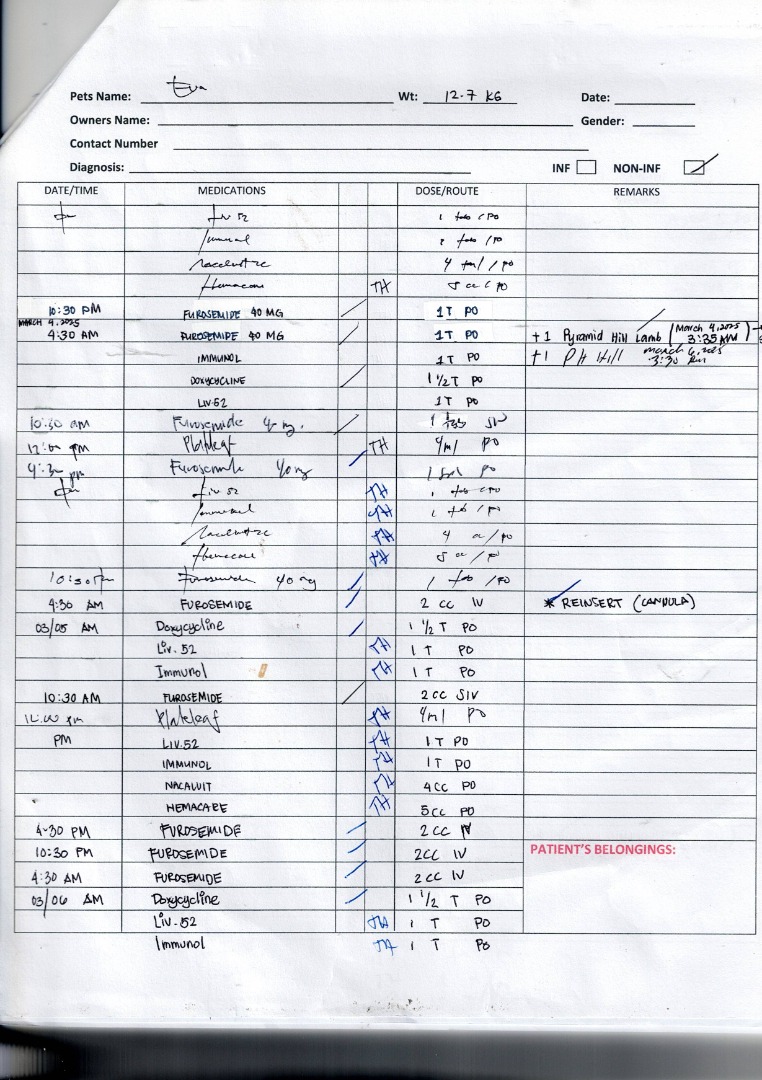 Pets Name: Eva Wt: 12.7 KG Date:
Owners Name: Gender:
Contact Number
Diagnosis: INF NON-INF
DATE/TIME MEDICATIONS DOSE/ROUTE REMARKS
Liv 52 1 tab / PO
Immunol 1 tab / PO
4 ml / PO
TH 5 cc / PO
10:30 PM FUROSEMIDE 40 MG 1T PO
MARCH 4, 2025
4:30 AM FUROSEMIDE 40 MG 1T PO +1 Pyramid Hill Lamb (March 4, 2025 3:35 AM)
IMMUNOL 1T PO +1 PH Hill March 6, 2025 3:30
DOXYCYCLINE 1 1/2 T PO
LIV.52 1T PO
10:30 am Furosemide 40 mg. 1
12:00 PM TH 4ml PO
4:30 pm Furosemide 40mg 1 tab PO
Liv 52 TH 1 tab / PO
Immunol TH 1 tab / PO
TH 4 cc / PO
TH 5 cc / PO
10:30 pm Furosemide 40 mg 1 tab / PO
4:30 AM FUROSEMIDE 2 CC IV * REINSERT (CANULA)
03/05 AM Doxycycline 1 1/2 T PO
Liv.52 TH 1 T PO
Immunol TH 1 T PO
10:30 AM FUROSEMIDE 2 CC SIV
12:00 pm Plateleaf TH 4ml PO
PM LIV.52 TH 1T PO
IMMUNOL TH 1T PO
NACALVIT TH 4CC PO
HEMACARE TH 5CC PO
4:30 PM FUROSEMIDE 2 CC IV
10:30 PM FUROSEMIDE 2CC IV
PATIENT'S BELONGINGS:
4:30 AM FUROSEMIDE 2 CC IV
03/06 AM Doxycycline 1 1/2 T PO
Liv.52 TH 1 T PO
Immunol TH 1 T PO